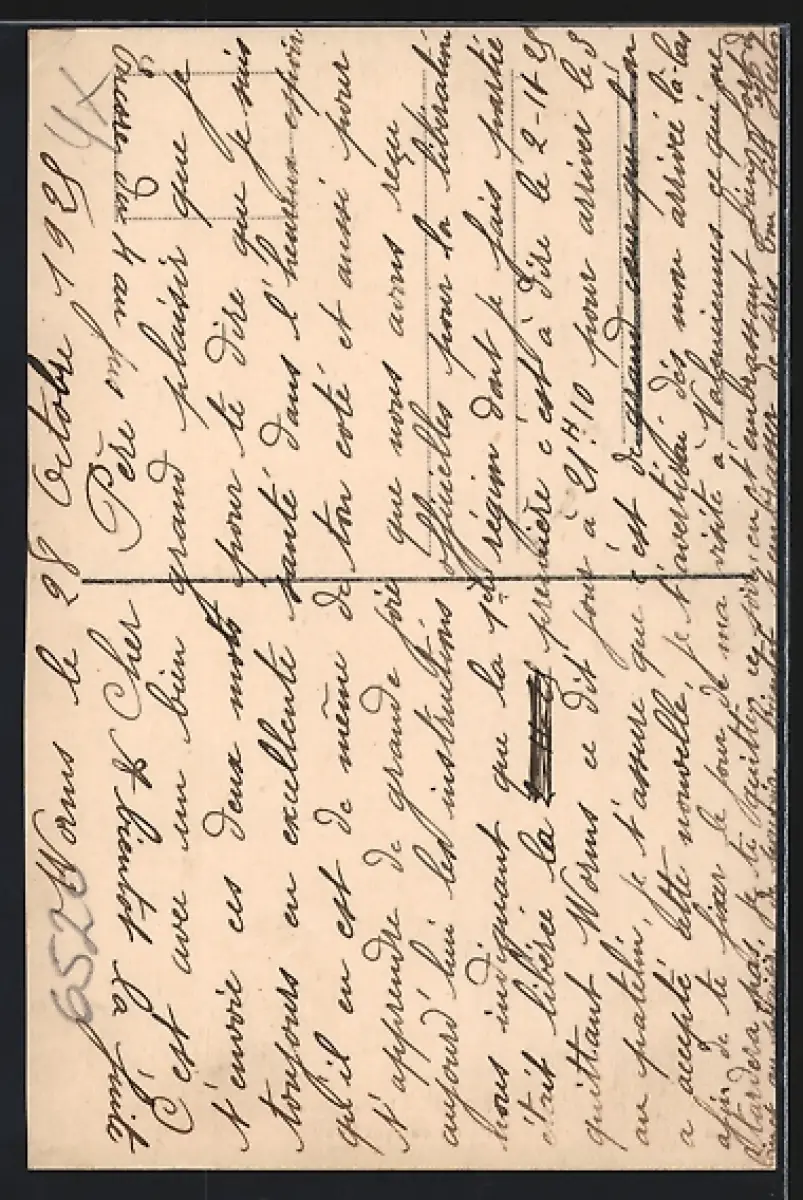 6520
4x
Worms le 28 Octobre 1925
Encore 4 au jus
& bientot la fuite
Cher Père
C'est avec un bien grand plaisir que je
t'envoie ces deux mots pour te dire que je suis
toujours en excellente santé dans l'heureux espoir
qu'il en est de même de ton coté et aussi pour
t'apprendre de grande joie que nous avons reçu
aujourd'hui les instructions officielles pour la libération
nous indiquant que la 1ère région dont je fais partie
était libérée la première c'est à dire le 2-11-25
quittant Worms ce dit jour à 21H10 pour arriver le 3
au patelin, je t'assure que c'est de grand cœur que l'on
a accepté cette nouvelle, je t'avertirai dès mon arrivée là-bas
afin de te fixer le jour de ma visite à Valenciennes ce qui ne
tardera pas. Je te quitte ce soir, en t'embrassant bien fort
bientot t'embrasser de vives ton fils